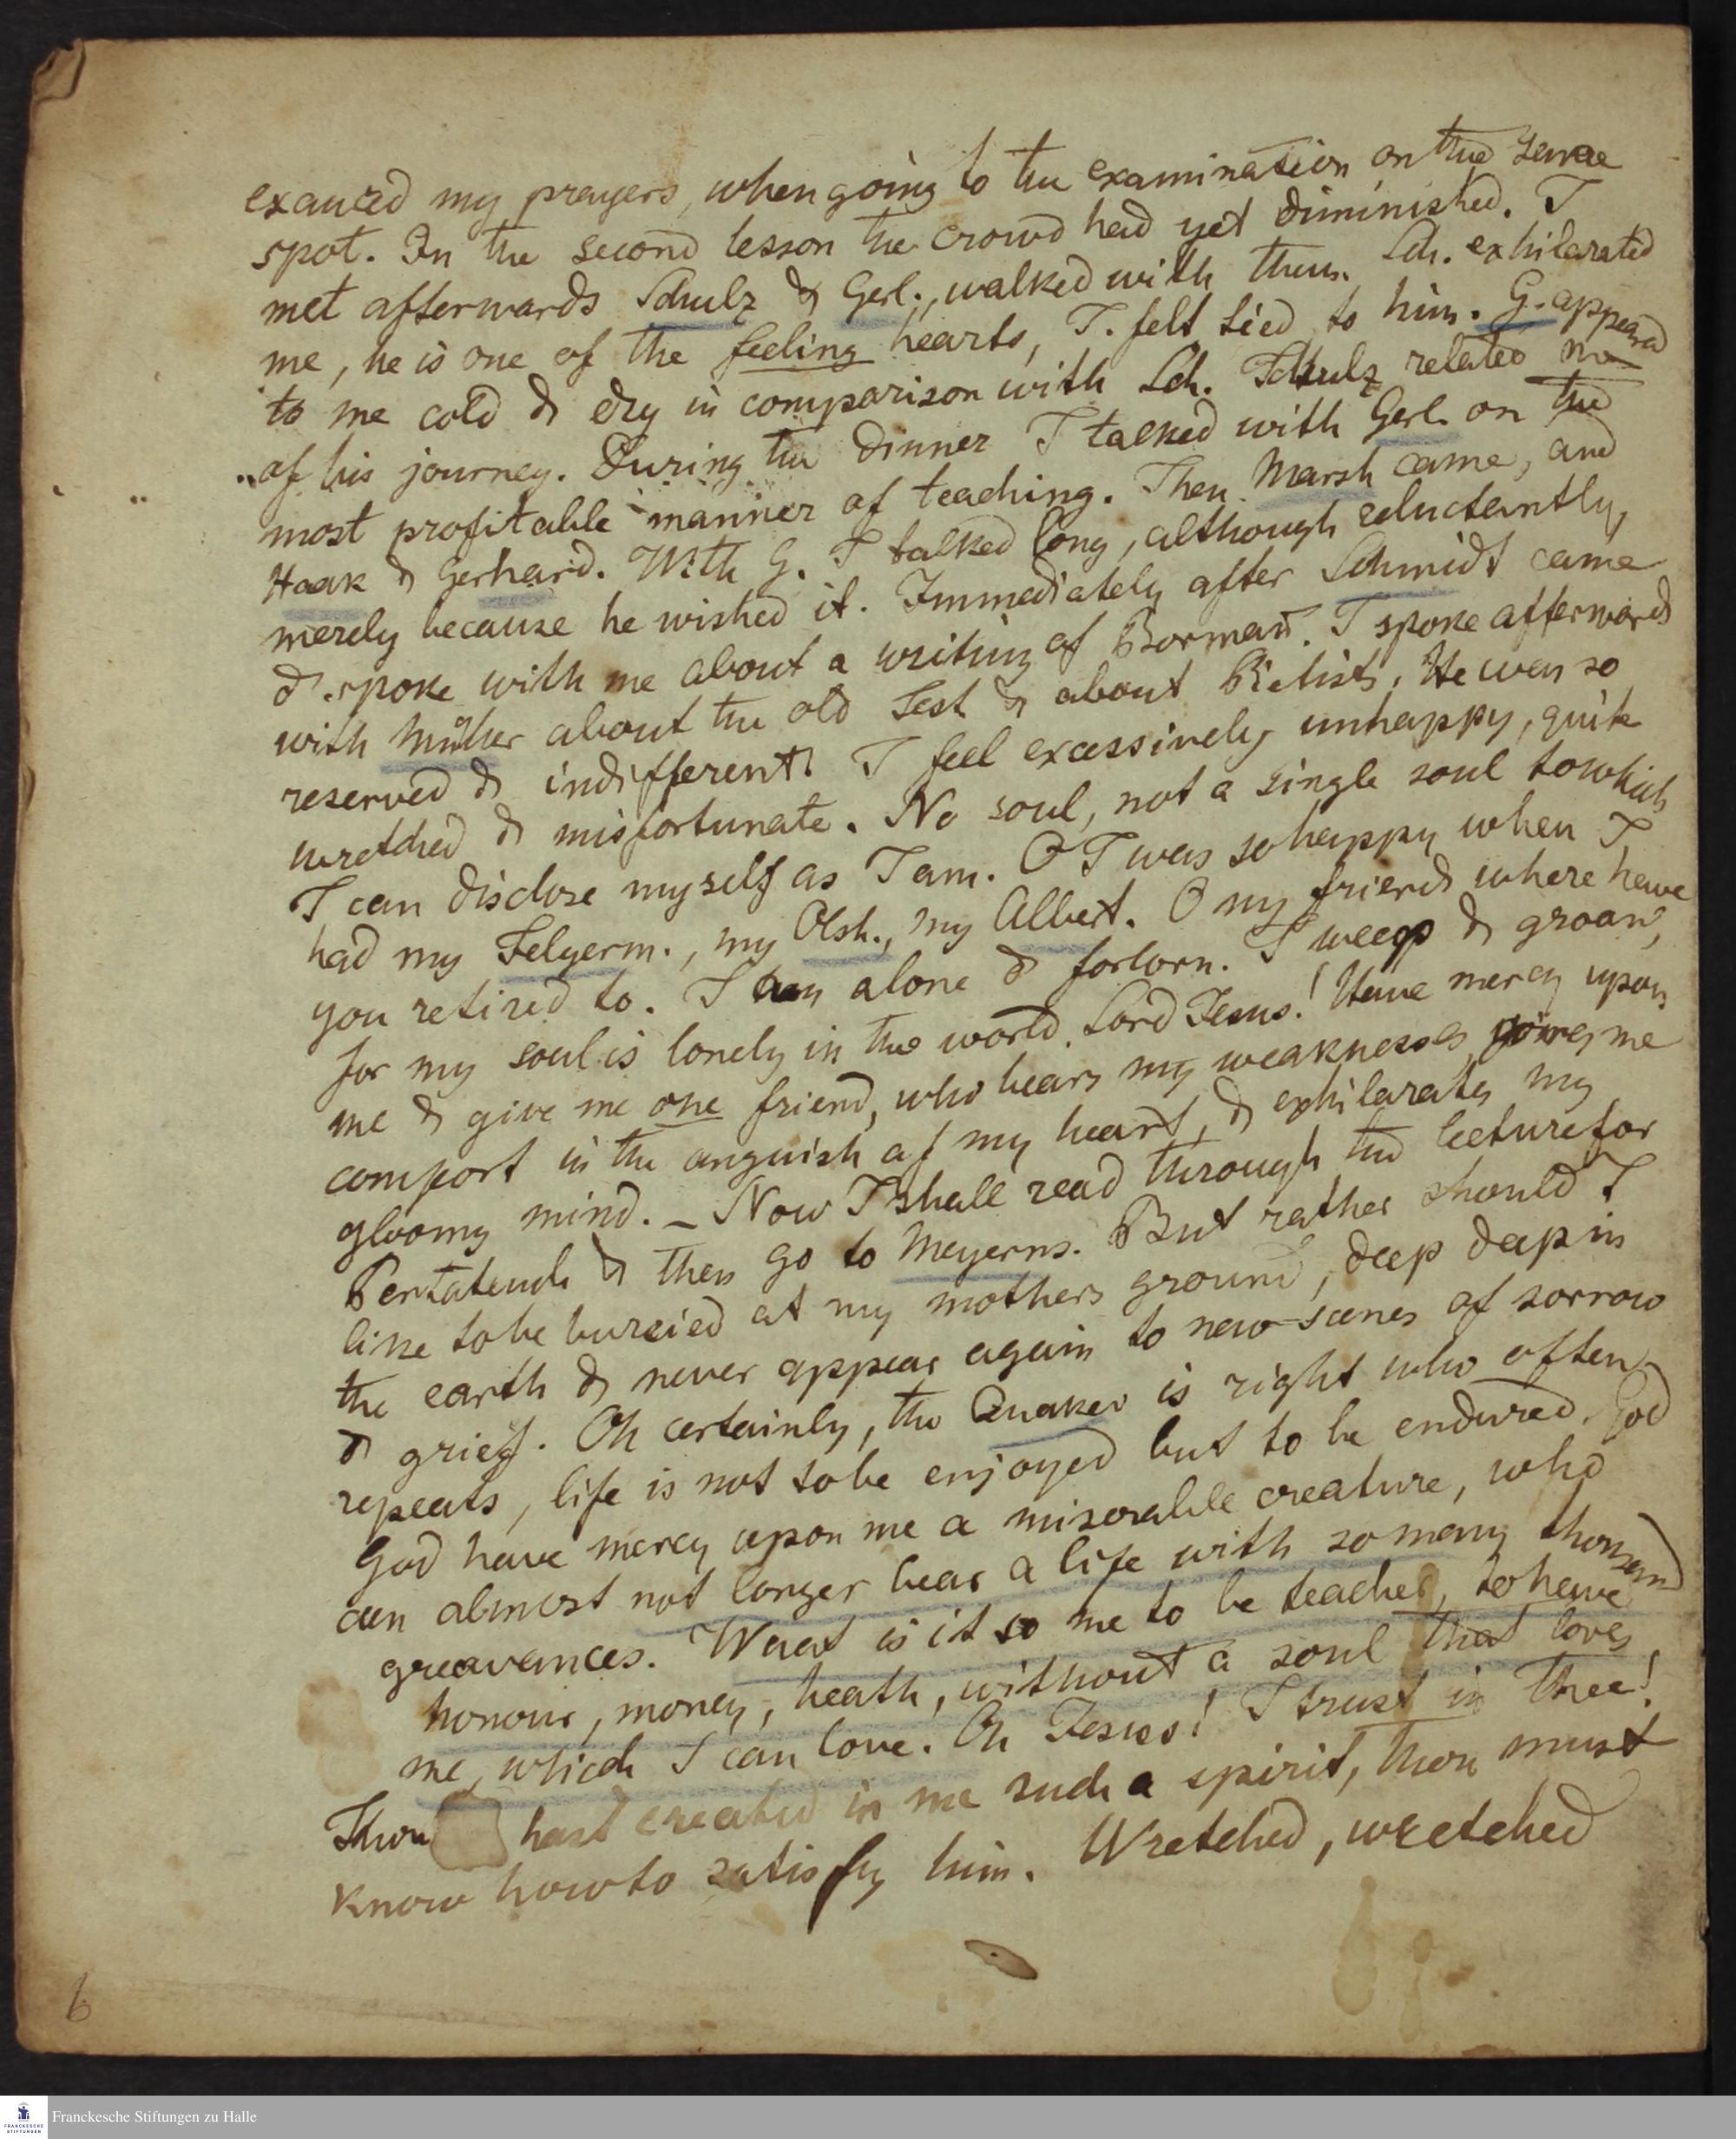 exauced my prayers, when going to the examination on the same
spot. In the second lesson the crowd had yet diminished. I
met afterwards Schulz & Gerl., walked with them. Sch. exhilarated
me, he is one of the feeling hearts, I. felt tied to him. G. appeard
to me cold & dry in comparison with Sch. Schulz related me
of his journey. During the dinner I talked with Gerl. on the
most profitable manner of teaching. Then Marsh came, and
Haak & Gerhard. With G. I talked long, although reluctantly,
merely because he wished it. Immediately after Schmidt came
& spoke with me about a writing of Borman. I spoke afterwards
with Müller about the old Test & about Pietists. He was so
reserved & indifferent. I feel excessively unhappy, quite
wretched & misfortunate. No soul, not a single soul to which
I can disclose myself as I am. O I was so happy when I
had my Felgerm., my Olsh., my Albert. O my friends where have
you retired to. I am alone & forlorn. I weep & groan,
for my soul is lonely in the world. Lord Jesus! Have mercy upon
me & give me one friend, who bears my weaknesses, gives me
comfort in the anguish of my heart, & exhilarates my
gloomy mind. – Now I shall read through the lecture for
Pentateuch & then go to Meyerns. But rather should I
like to be buried at my mothers ground, deep deep in
the earth & never appear again to new scenes of sorrow
& grief. Oh certainly, the Quaker is right who often
repeats, life is not to be enjoyed but to be endured. God
God have mercy upon me a miserable creature, who
can almost not longer bear a life with so many thousand
greavances. What is it so me to be teacher, to have
honour, money, heath, without a soul that loves
me, which I can love. Oh Jesus! I trust in Thee!
Thou hast created in me such a spirit, thou must
know how to satisfy him. Wretched, wretched
6
FRANCKESCHE
STIFTUNGEN
Franckesche Stiftungen zu Halle